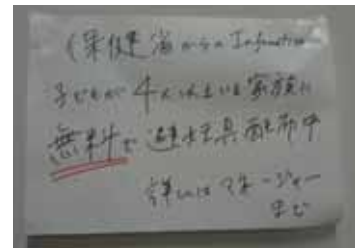 保健 からの Information
子どもが4人以上いる家族に
無料で 避妊具配布中
詳しくは マネージャー
まで